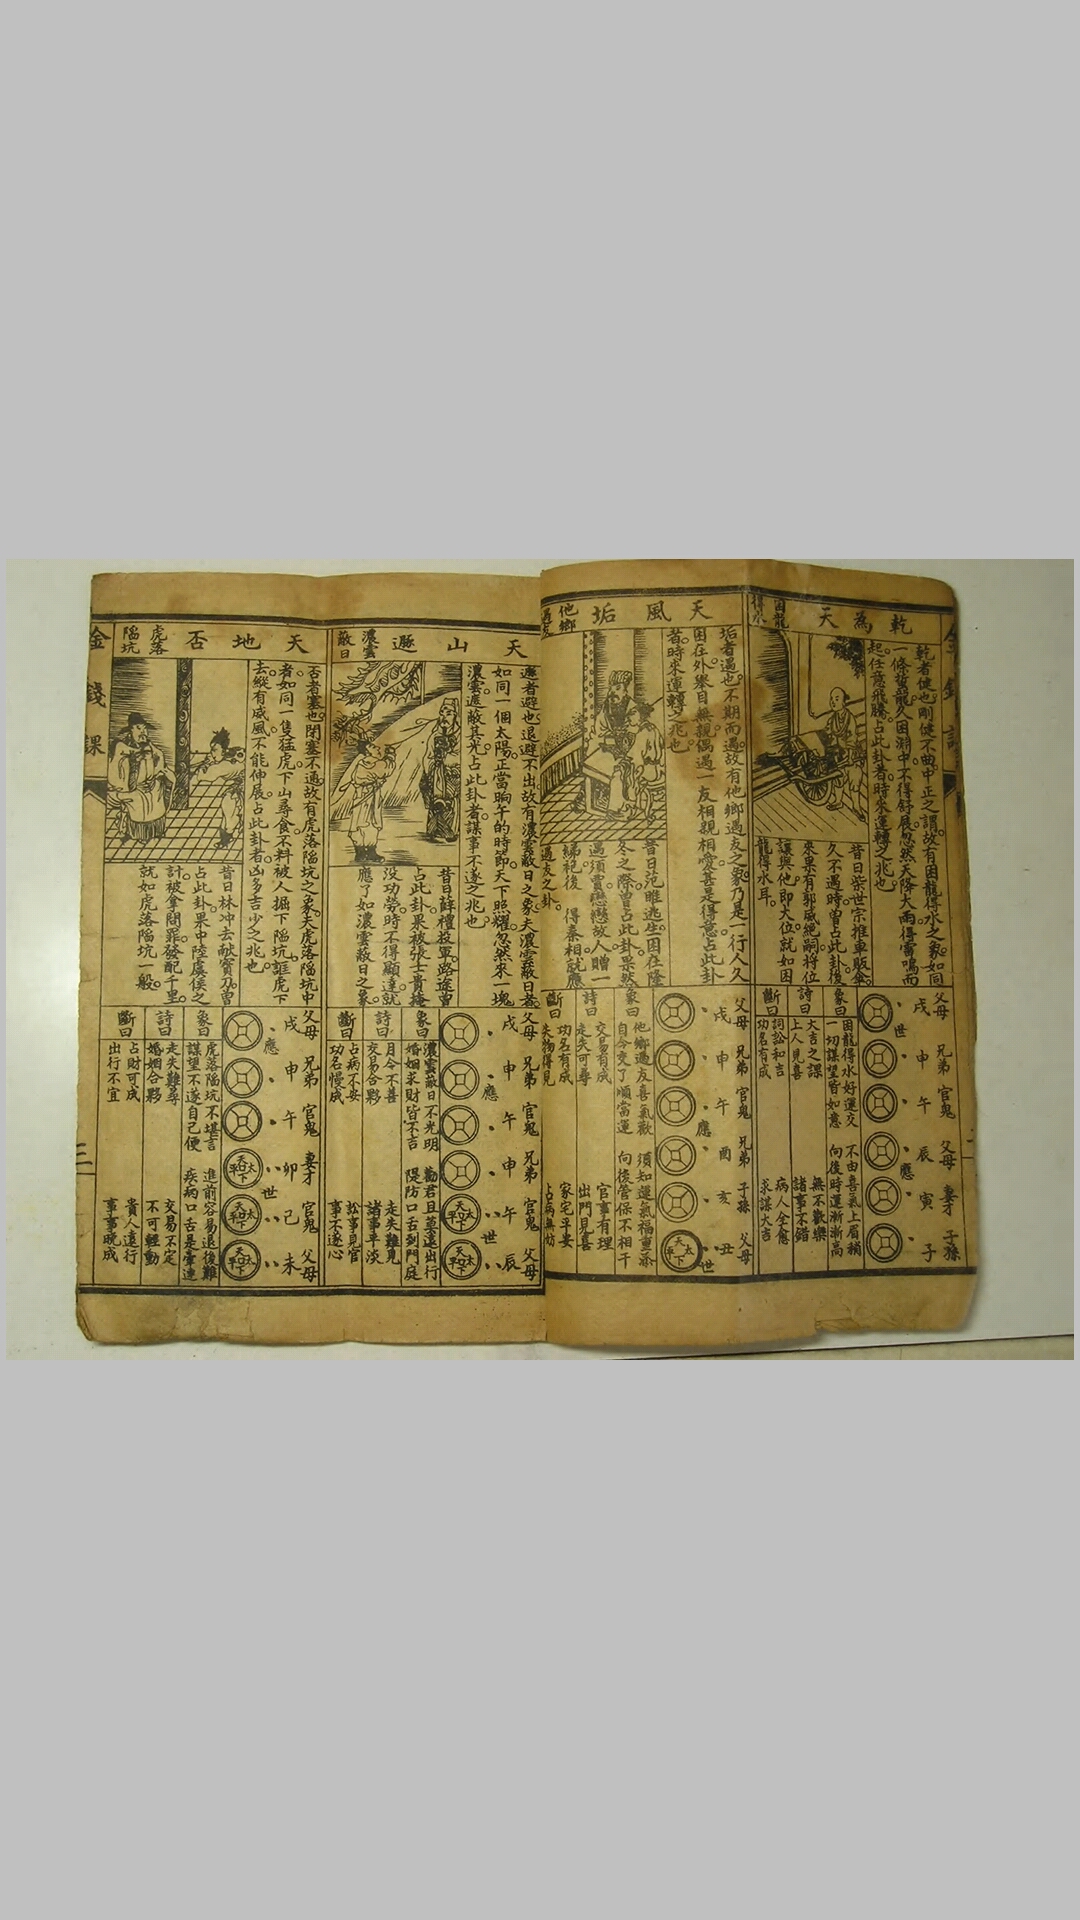 乾為天
困龍得水
乾者健也剛健不曲中正之謂故有困龍得水之象如同
一條蛟龍久困淵中不得舒展忽然天降大雨得雷鳴而
起任意飛騰占此卦者時來運轉之兆也
昔日柴世宗推車販傘
久不遇時曾占此卦後
來果有郭威絕嗣將位
讓與他即大位就如困
龍得水耳
父母 戌 世
兄弟 申
官鬼 午
父母 辰 應
妻才 寅
子孫 子
象曰
困龍得水好運交 不由喜氣上眉稍
一切謀望皆如意 向後時運漸漸高
詩曰
大吉之課 無不歡樂
上人見喜 諸事不錯
斷曰
詞訟和吉 病人全愈
功名有成 求謀大吉
天風垢
他鄉遇友
垢者遇也不期而遇故有他鄉遇友之象乃是一行人久
困在外舉目無親偶遇一友相親相愛甚是得意占此卦
者時來運轉之兆也
昔日范睢逃生困在隆
冬之際曾占此卦果然
遇須賈懸故人贈一
綈袍後 得秦相就應
遇友之卦
父母 戌
兄弟 申
官鬼 午 應
兄弟 酉
子孫 亥
父母 丑 世
象曰
他鄉遇友喜氣歡 須知運氣福重添
自今交了順當運 向後管保不相干
詩曰
交易有成 官事有理
走失可尋 出門見喜
斷曰
功名有成 家宅平安
失物得見 占病無妨
天山遯
濃雲蔽日
遯者避也退避不出故有濃雲蔽日之象夫濃雲蔽日者
如同一個太陽正當晌午的時節天下照耀忽然來一塊
濃雲遮蔽其光占此卦者謀事不遂之兆也
昔日薛禮投軍路途曾
占此卦果被張士貴掩
沒功勞時不得顯達就
應了如濃雲蔽日之象
父母 戌
兄弟 申 應
官鬼 午
兄弟 申
官鬼 午 世
父母 辰
象曰
濃雲蔽日不光明 勸君且莫遠出行
婚姻求財皆不吉 隄防口舌到門庭
詩曰
月令不善 走失難見
交易合夥 諸事平淡
斷曰
占病不安 訟事見官
功名慢成 事事不遂心
天地否
虎落陷坑
否者塞也閉塞不通故有虎落陷坑之象夫虎落陷坑中
者如同一隻猛虎下山尋食不料被人掘下陷坑誆虎下
去縱有威風不能伸展占此卦者凶多吉少之兆也
昔日林冲去献寶刀曾
占此卦果中陸虞侯之
計被拿問罪發配千里
就如虎落陷坑一般
父母 戌 應
兄弟 申
官鬼 午
妻才 卯 世
官鬼 己
父母 未
天下太平
象曰
虎落陷坑不堪言 進前容易退後難
謀望不遂自己便 疾病口舌是牽連
詩曰
走失難尋 交易不定
婚姻合夥 不可輕動
斷曰
占財可成 貴人遠行
出行不宜 事事晚成
金錢課
二